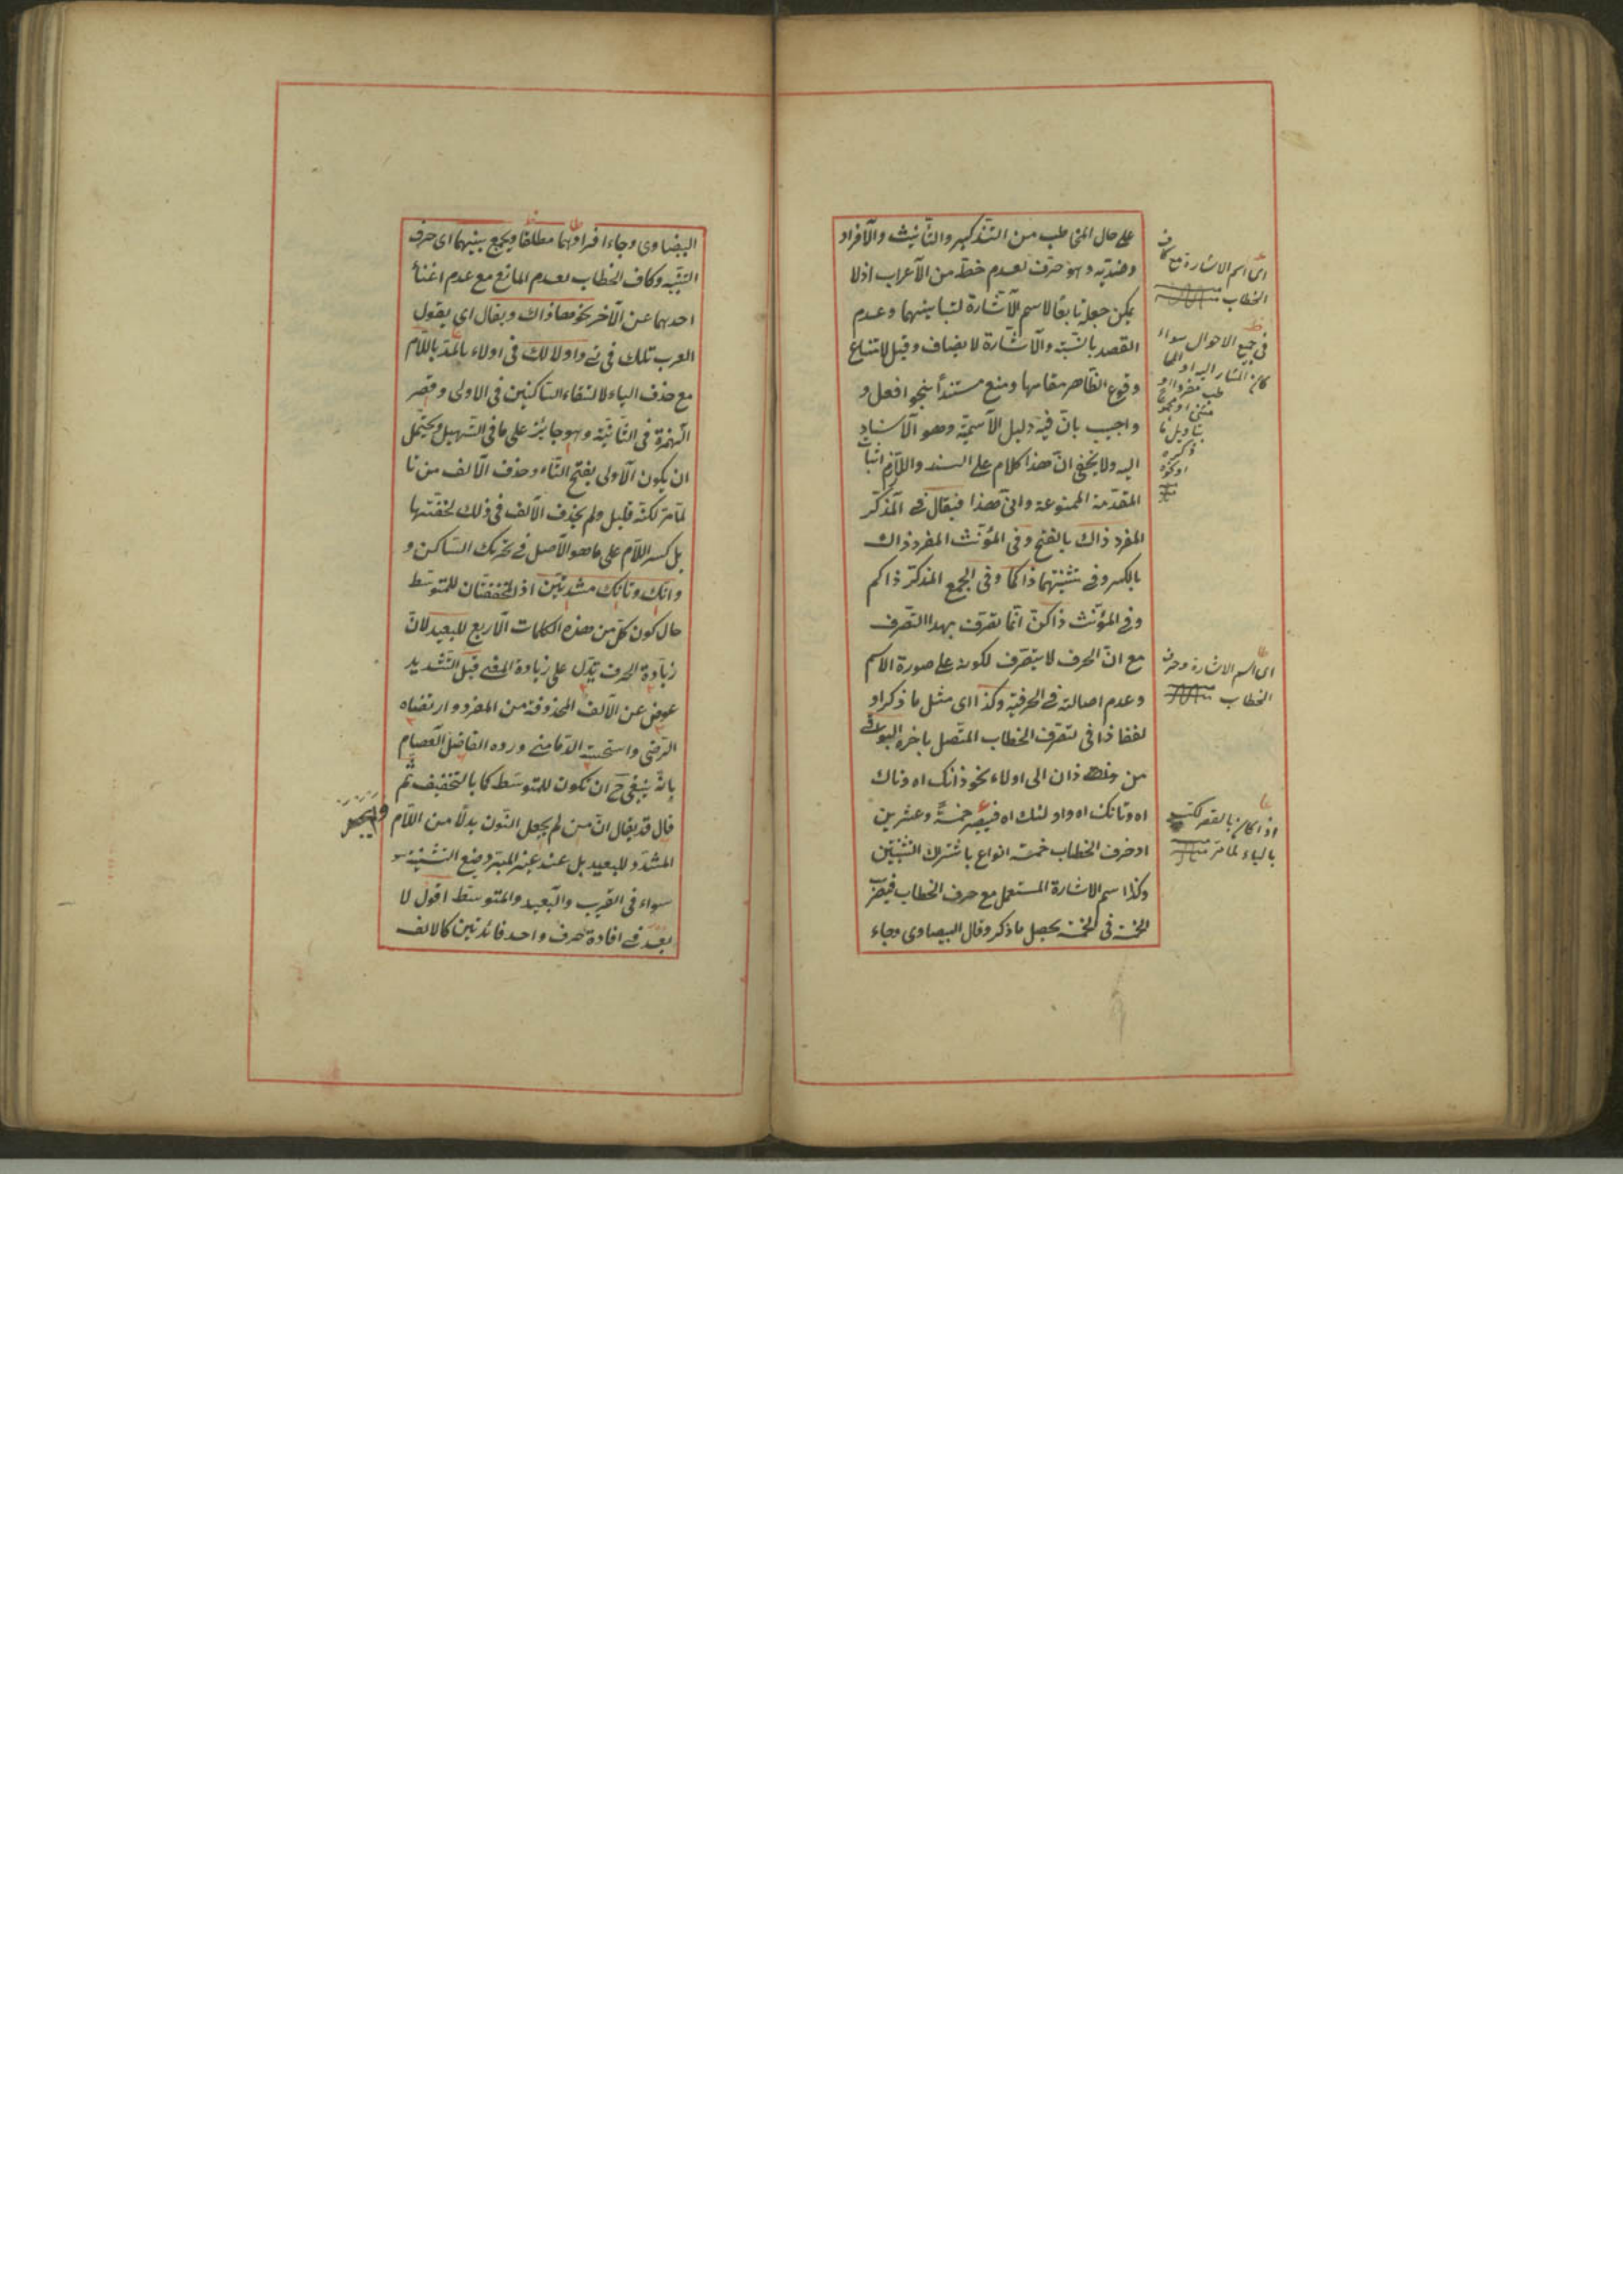 على حال المخاطب من التذكير والتأنيث والافراد
وضديه وهو حرف لعدم حظه من الاعراب اذ لا
يمكن جعله تابعا لاسم الاشارة لتباينهما وعدم
القصد بالنسبة والاشارة لا يضاف وقيل لامتناع
وقوع الظاهر مقامها ومنع مستندا بنحو افعل و
واجيب بان فيه دليل الاسمية وهو الاسناد
اليه ولا يخفى ان هذا كلام على السند واللازم اثبات
المقدمة الممنوعة وانى هذا فيقال في المذكر
المفرد ذاك بالفتح وفى المؤنث المفرد ذاك
بالكسر وفى تثنيتهما ذاكما وفى الجمع المذكر ذاكم
وفى المؤنث ذاكن انما تصرف بهذا التصرف
مع ان الحرف لا يتصرف لكونه على صورة الاسم
وعدم اصالته في الحرفية وكذا اى مثل ما ذكر او
لفظا ذا فى تصرف الخطاب المتصل باخره البواقى
من ذان الى اولاء نحو ذانك اه وتاك
اه وتانك اه واولئك اه فيصير خمسة وعشرين
اذ حرف الخطاب خمسة انواع باشتراك التثنيتين
وكذا اسم الاشارة المستعمل مع حرف الخطاب فيضرب
الخمسة فى الخمسة يحصل ما ذكر وقال البيضاوى وجاء
اى اسم الاشارة مع كاف
الخطاب
فى جميع الاحوال سواء
كان المشار اليه او المخا
طب مفردا او
مثنى او مجموعا
بتاويل ما
ذكره
او نحوه
اى اسم الاشارة وحرف
الخطاب
اذا كان بالقصر لكتب
بالياء لما مر
البيضاوى وجاء افرادهما مطلقا ويجمع بينهما اى حرف
التنبيه وكاف الخطاب لعدم المانع مع عدم اغناء
احدهما عن الآخر نحو هذاك ويقال اى يقول
العرب تلك فى تى واولالك فى اولاء بالمد باللام
مع حذف الياء لالتقاء الساكنين فى الاولى وقصر
الهمزة فى الثانية وهو جائز على ما فى التسهيل ويحتمل
ان يكون الاولى بفتح التاء وحذف الالف من تا
لما مر لكنه قليل ولم يحذف الالف فى ذلك لخفتها
بل كسر اللام على ما هو الاصل فى تحريك الساكن و
ذانك وتانك مشددتين اذ المخففتان للمتوسط
حال كون كل من هذه الكلمات الاربع للبعيد لان
زيادة الحرف تدل على زيادة المعنى قيل التشديد
عوض عن الالف المحذوفة من المفرد وارتضاه
الرضى واستحسنه الدمامينى ورده الفاضل العصام
بانه ينبغى ح ان تكون للمتوسط كما بالتخفيف ثم
قال قد يقال ان من لم يجعل النون بدلا من اللام
المشدد للبعيد بل عند غير المبرد وضع التثنية
سواء فى القريب والبعيد والمتوسط اقول لا
بعد فى افادة حرف واحد فائدتين كالالف